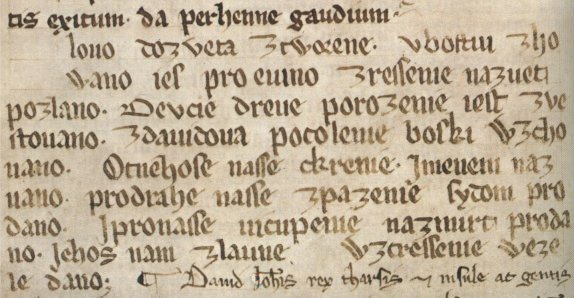 tis exitum· da perhenne gaudium·
louo dozveta ztworene· vbostui zho
wano ies pro euino zressenie nazuet
pozlano· Deucie dreue porozenie iest zve
stouano· zdauidoua pocolenie boski wzcho
uano· Otnehose nasse ckrenie· Imenem naz
uano· prodrahe nasse zpazenie sydom pro
dano· Ipronasse uicupenie nazmirt proda
no· Iehos nam zlauue wzcressenie weze
le dano; ¶ Dauid rex tharsis ⁊ insule ac gentis